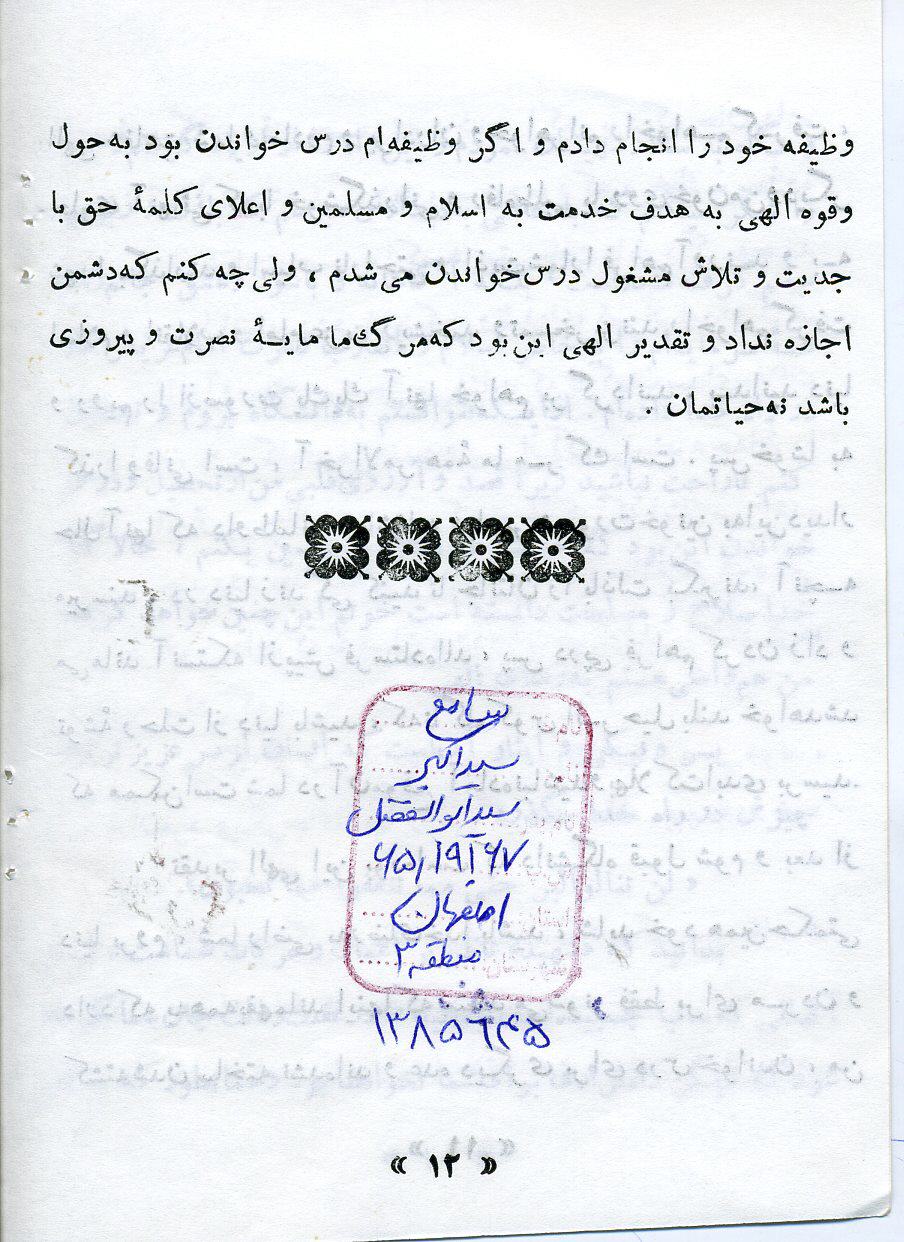 وظیفه خود را انجام دادم و اگر وظیفه‌ام درس خواندن بود به‌حول
وقوه الهی به هدف خدمت به اسلام و مسلمین و اعلای کلمهٔ حق با
جدیت و تلاش مشغول درس‌خواندن می‌شدم ، ولی چه کنم که‌دشمن
اجازه نداد و تقدیر الهی این‌بود که‌مرگ‌ما مایهٔ نصرت و پیروزی
باشد نه‌حیاتمان .
سامع
سیداکبر
سیدابوالفضل
۶۵٫۱۹۱۶۷
اصفهان
منطقه ۳
۱۳۸۵۶۴۵
« ۱۲ »